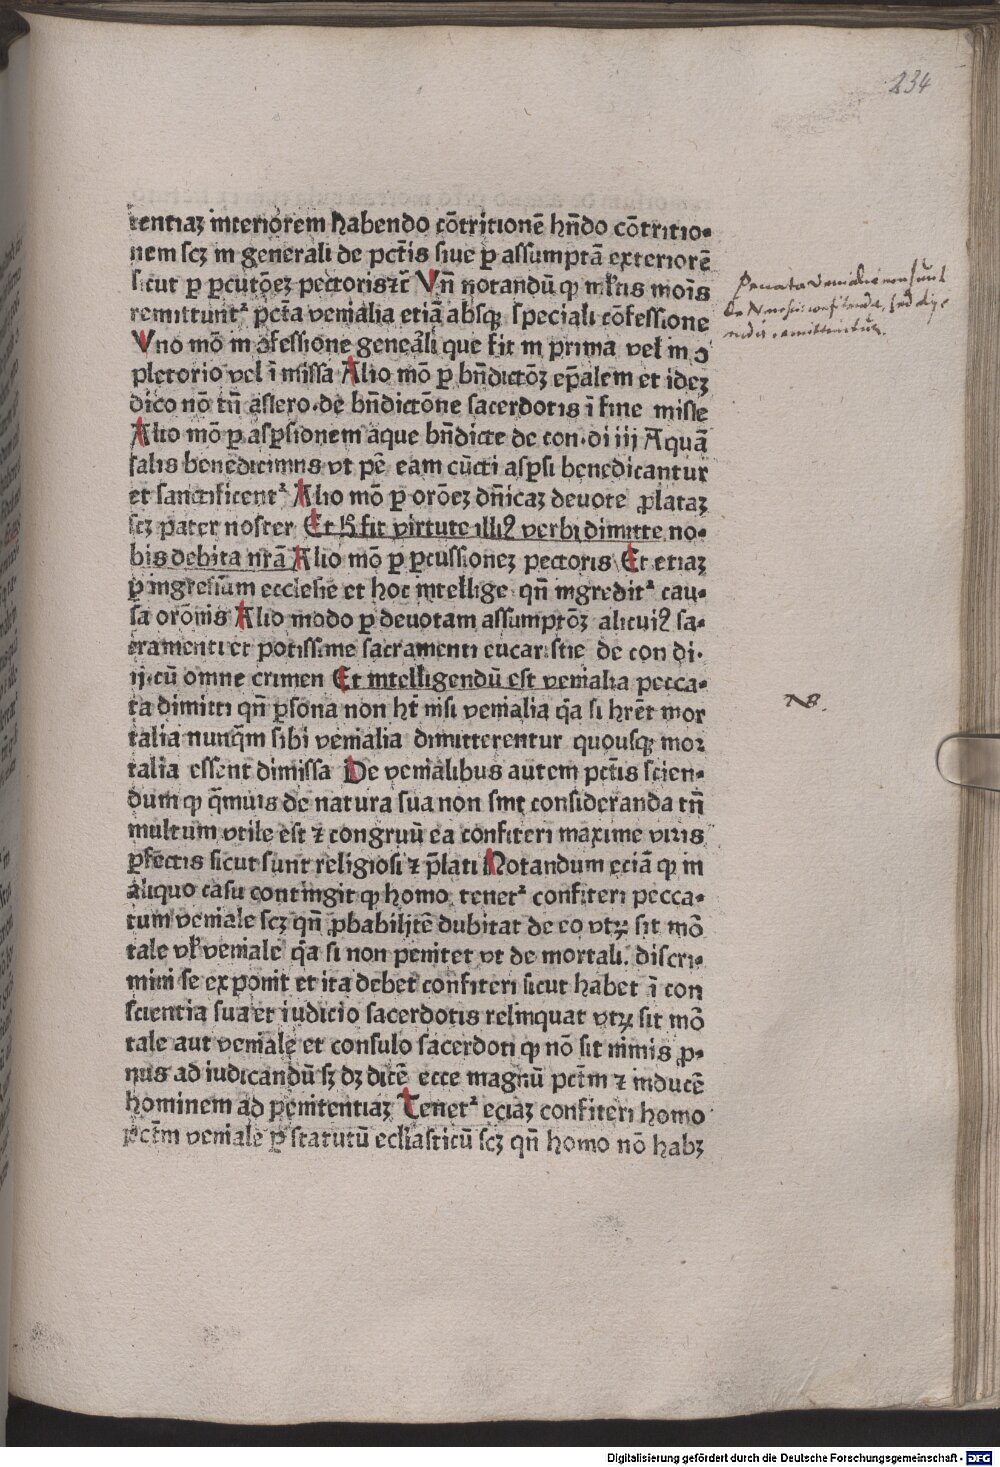 234
tentiaʒ interiorem habendo cōtritionē hn̄do cōtritio-
nem scʒ in generali de pctīs siue ꝑ assumptā exteriorē
sicut ꝑ ꝑcutōeʒ pectoris ⁊c̄ Vn̄ notandū ꝙ mltis mōis
remittuntᷣ pctā venialia etiā absqꝫ speciali cōfessione
Vno mō in ꝯfessione geneāli que fit in prima vel in ꝯ
pletorio vel ī missa Alio mō ꝑ bn̄dictōʒ ep̄alem et ideʒ
dico nō tn̄ assero.de bn̄dictōne sacerdotis ī fine misse
Alio mō ꝑ asꝑsionem aque bn̄dicte de con.di iij Aquā
salis benedicimus vt pē eam cūcti asꝑsi benedicantur
et sanctificentᷣ Alio mō ꝑ orōeʒ dn̄icaʒ deuote ꝓlataʒ
scʒ pater noster Et hͦ fit virtute illiꝰ verbi dimitte no-
bis debita nrā Alio mō ꝑ ꝑcussioneʒ pectoris Et etiaʒ
ꝑ ingressum ecclesie et hoc intellige qn̄ ingreditᷣ cau-
sa orōnis Alio modo ꝑ deuotam assumptōʒ alicuiꝰ sa-
cramenti et potissime sacramenti eucaristie de con di.
ij.cū omne crimen Et intelligendū est venialia pecca-
ta dimitti qn̄ ꝑsona non ht̄ nisi venialia q̄a si hrēt mor
talia nunq̄m sibi venialia dimitterentur quousqꝫ moꝛ
talia essent dimissa De venialibus autem pctīs scien-
dum ꝙ q̄muis de natura sua non sint consideranda tn̄
multum vtile est ⁊ congruū ea confiteri maxime viris
ꝑfectis sicut sunt religiosi ⁊ p̄lati Notandum eciā ꝙ in
aliquo casu contingit ꝙ homo tenetᷣ confiteri pecca-
tum veniale scʒ qn̄ ꝓbabilitē dubitat de eo vtꝝ sit mō
tale vl̓ veniale q̄a si non penitet vt de mortali. discri-
mini se exponit et ita debet confiteri sicut habet ī con
scientia sua et iudicio sacerdotis relinquat vtꝝ sit mō
tale aut veniale et consulo sacerdoti ꝙ nō sit nimis ꝓ-
nus ad iudicandū sʒ dʒ dicē ecce magnū pctm̄ ⁊ inducē
hominem ad penitentiaʒ Tenetᷣ eciaʒ confiteri homo
pctm̄ veniale ꝑ statutū eccliasticū scʒ qn̄ homo nō habʒ
NB.
Digitalisierung gefördert durch die Deutsche Forschungsgemeinschaft - DFG